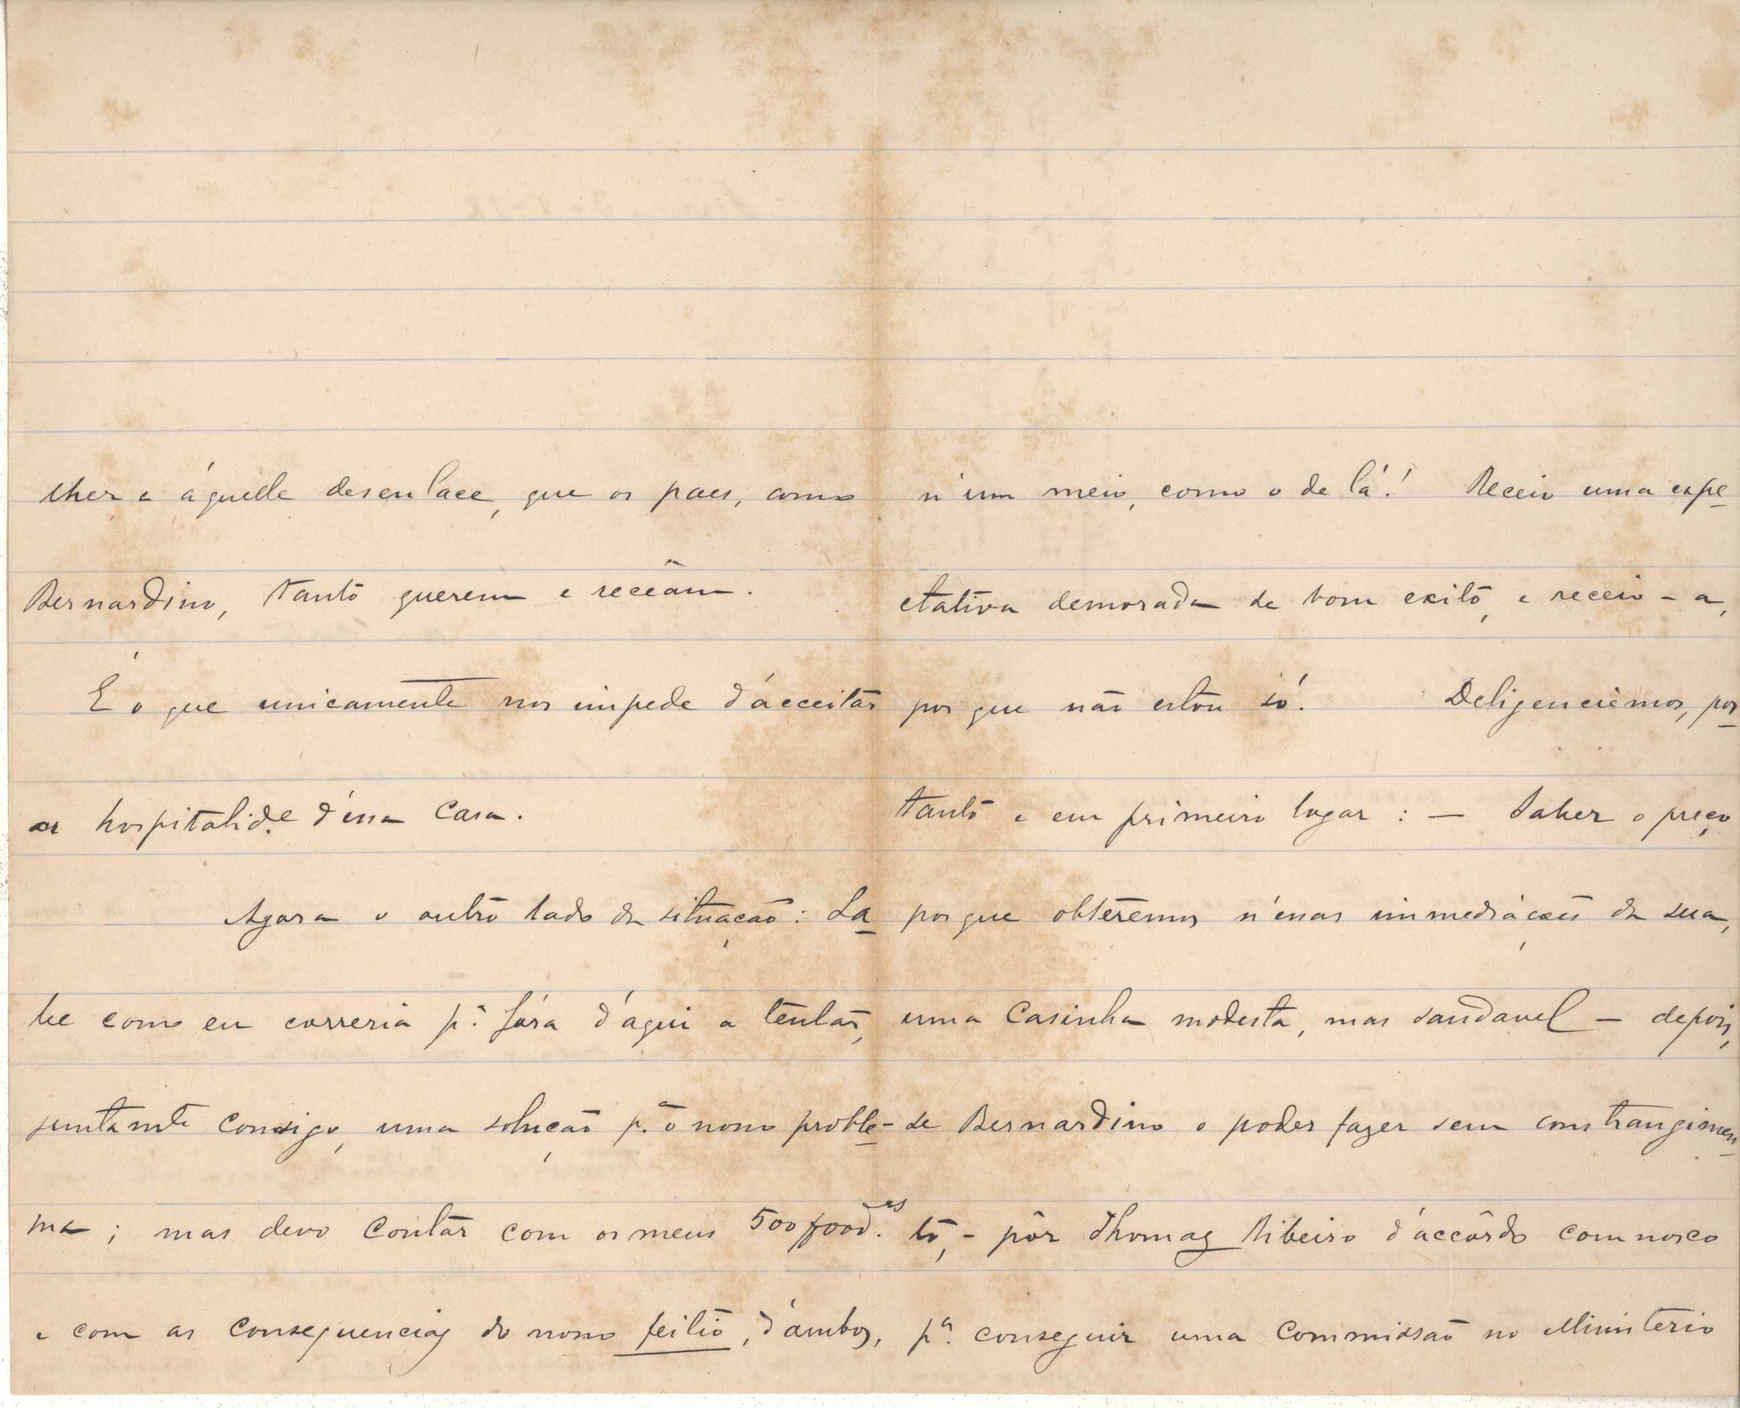 lher e áquelle desenlace, que os paes, como
Bernardino, tanto querem e receiâm.
É o que unicamente nos impede d'acceitar
a hospitalid.e d'essa casa.
Agora o outro lado da situação: Sa
be como eu correria p.ª fóra d'aqui a tentar,
juntam.te comsigo, uma solução p.ª o nosso proble-
ma; mas devo contar com os meus
e com as consequencias do nosso feitio, d'ambos,
n'um meio, como o de lá! Receio uma expe
ctativa demorada de bom exito, e receio-a,
por que não estou só! Deligenciêmos, por
tanto e em primeiro logar: — Saber o preço
porque obterêmos n'essas immediações da sua,
uma casinha modesta, mas saudavel — depois,
se Bernardino o poder fazer sem constrangimen
to, - pôr Thomaz Ribeiro d'accôrdo comnosco
p.ª conseguir uma commissão no Ministerio